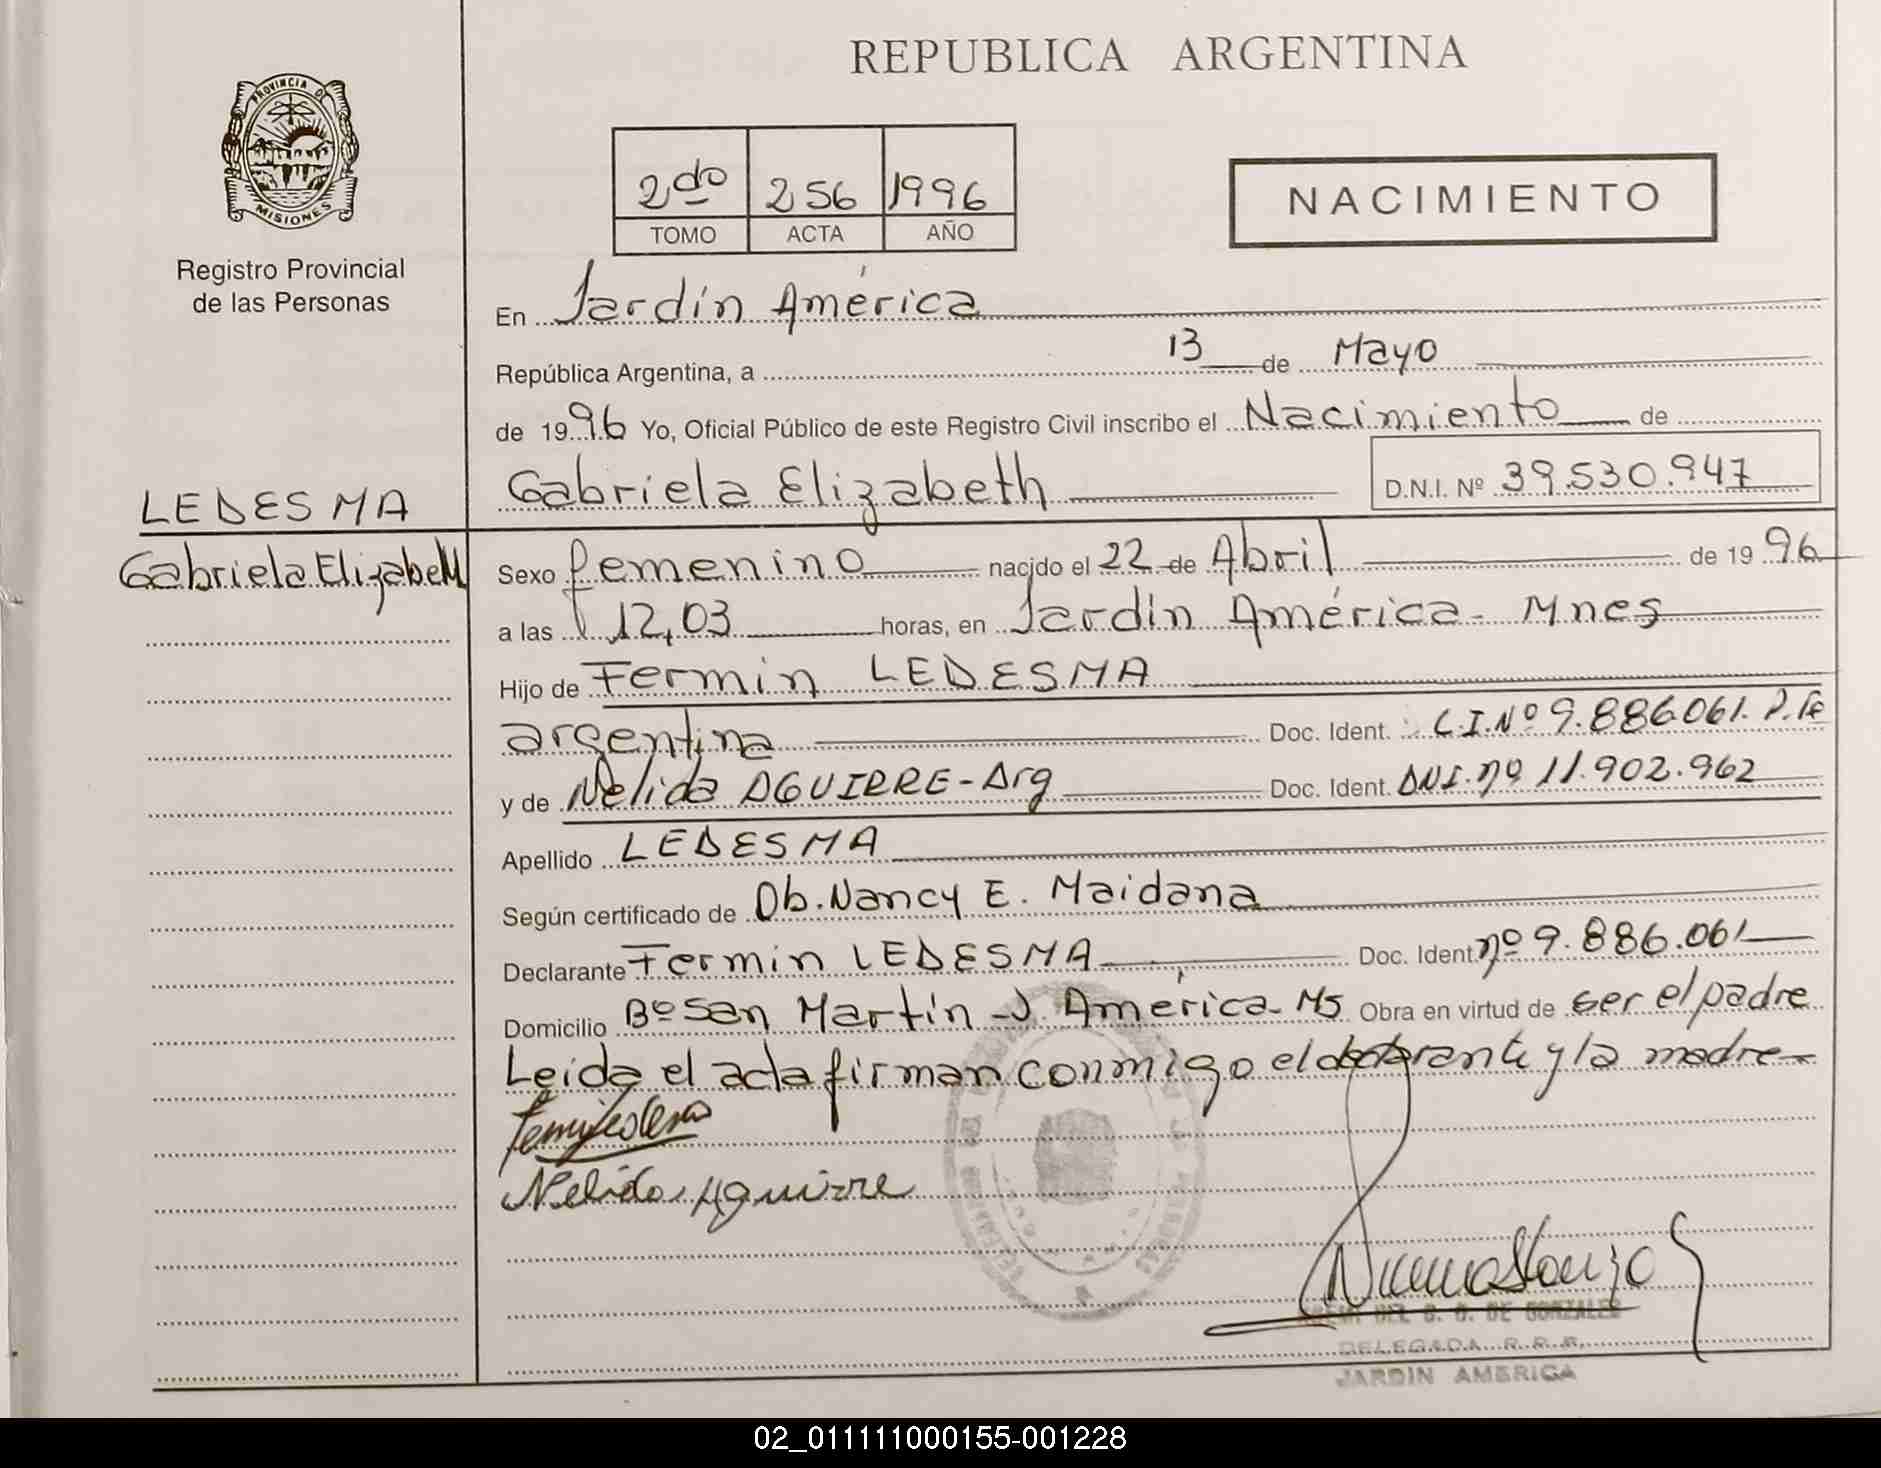 REPUBLICA ARGENTINA
PROVINCIA DE
MISIONES
Registro Provincial
de las Personas
2do 256 1996
TOMO ACTA AÑO
NACIMIENTO
En Jardín América
República Argentina, a 13 de Mayo
de 1996 Yo, Oficial Público de este Registro Civil inscribo el Nacimiento de
Gabriela Elizabeth D.N.I. Nº 39.530.947
LEDESMA
Gabriela Elizabeth
Sexo femenino nacido el 22 de Abril de 1996
a las 12,03 horas, en Jardín América - Mnes
Hijo de Fermin LEDESMA
argentina Doc. Ident. C.I.Nº 9.886.061. P.Fe
y de Nelida AGUIRRE - Arg Doc. Ident. DNI. nº 11.902.962
Apellido LEDESMA
Según certificado de Ob. Nancy E. Maidana
Declarante Fermin LEDESMA Doc. Ident. nº 9.886.061
Domicilio Bº San Martín - J. América - Ms Obra en virtud de ser el padre
Leida el acta firman conmigo el declarante y la madre
Nelida Aguirre
DE GONZALEZ
DELEGADA R.R.P.
JARDIN AMERICA
02_011111000155-001228